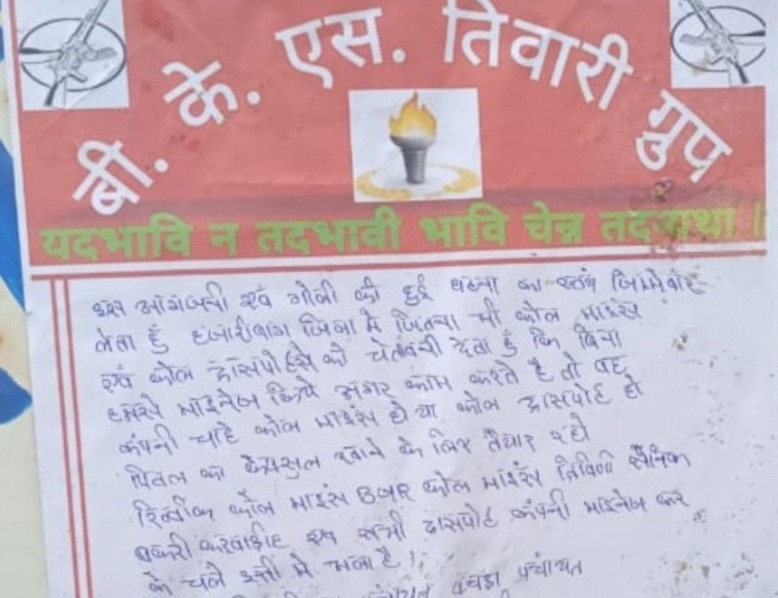 बी. के. एस. तिवारी ग्रुप
यदभावि न तदभावी भावि चेन्न तदन्यथा।
इस आगजनी एवं गोली की हुई घटना का स्वयं जिम्मेवार
लेता हुँ हजारीबाग जिला मे जितना भी कोल माइंस
एवं कोल ट्रांसपोर्ट को चेतावनी देता हुँ कि बिना
हमसे माइनेज किये अगर काम करते है तो वह
कंपनी चाहे कोल माइंस हो या कोल ट्रासपोर्ट हो
पितल का कैपसुल खाने के लिए तैयार रहो
रित्वीक कोल माइंस BGR कोल माइंस त्रिवेणी सैनिक
चकरी करवाडीह एवं सभी ट्रासपोर्ट कंपनी माइनेज कर
के चले इसी मे भला है!
पंचायत